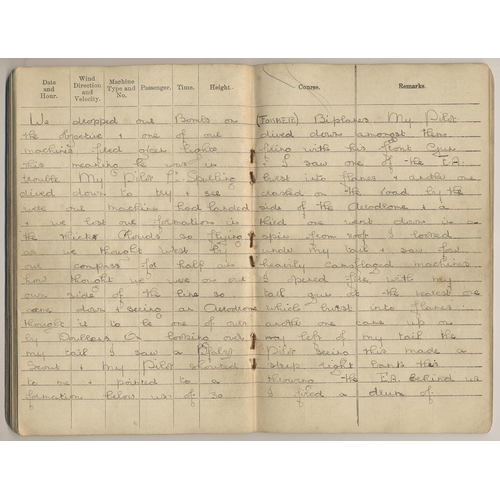 Date and Hour. Wind Direction and Velocity. Machine Type and No. Passenger. Time. Height.
We dropped our Bombs on
the objective & one of our
machines fired
this meaning he was in
trouble My Pilot Lt. Spurling
dived down to try & see
were our machine had landed
& we lost our formation in
the thick Clouds so flying
as we thought West by
our compass for half an
hour thought we were on our
own side of the line so
came down & seeing an Aerodrome
thought it to be one of ours
by Doullens On looking over
my tail I saw a
Scout & my Pilot shouted
to me & pointed to a
formation below us of 30
Course. Remarks.
(FOKKER) Biplanes My Pilot
dived down amongst them
firing with his front Gun
& I saw one of the E.A.
burst into flames & another one
crashed on the road by the
side of the Aerodrome & a
third one went down in a
spin from 1000ft I looked
under my tail & saw four
heavily camoflaged machines
I opened fire with my
tail gun at the nearest one
which burst into flames
another one came up on
my left of my tail the
Pilot seeing this made a
steep right bank this
throwing the E.A. behind us
I fired a drum of